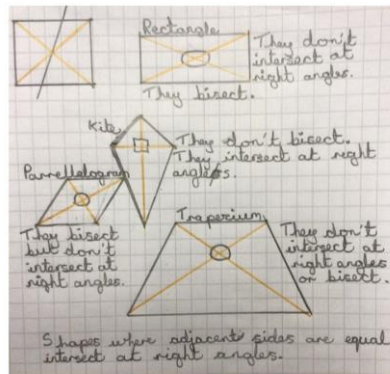 Rectangle
They don't
intersect at
right angles.
They bisect.
Kite
They don't bisect.
They intersect at right
angles.
Parrellelogram
They bisect
but don't
intersect at
right angles.
Traperium
They don't
intersect at
right angles
or bisect.
Shapes where adjacent sides are equal
intersect at right angles.